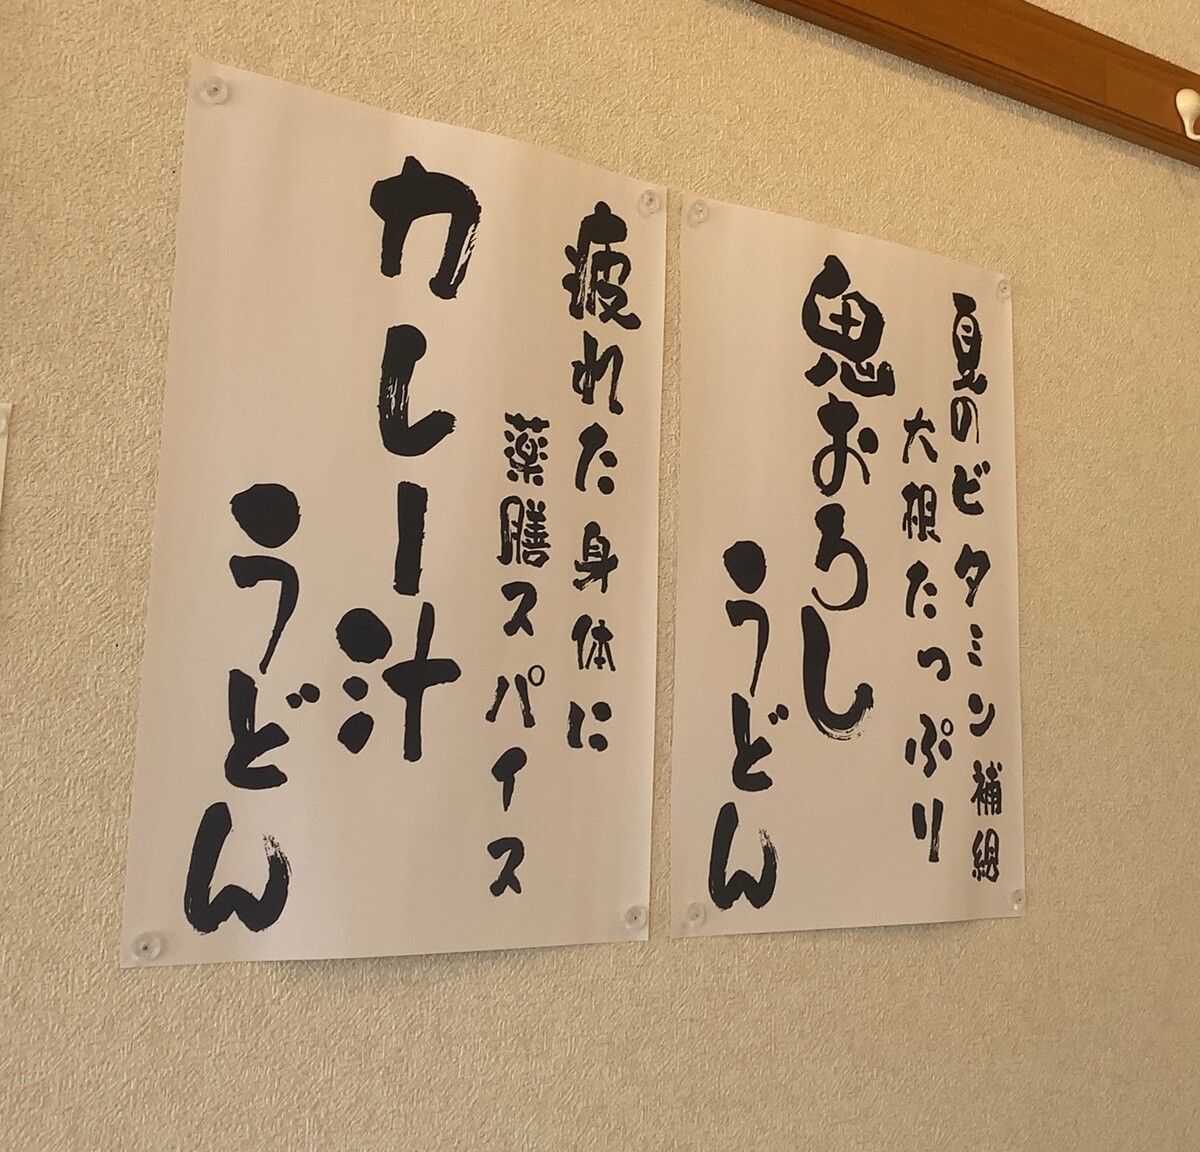 夏のビタミン補給
大根たっぷり
鬼おろし
うどん
疲れた身体に
薬膳スパイス
カレー汁
うどん